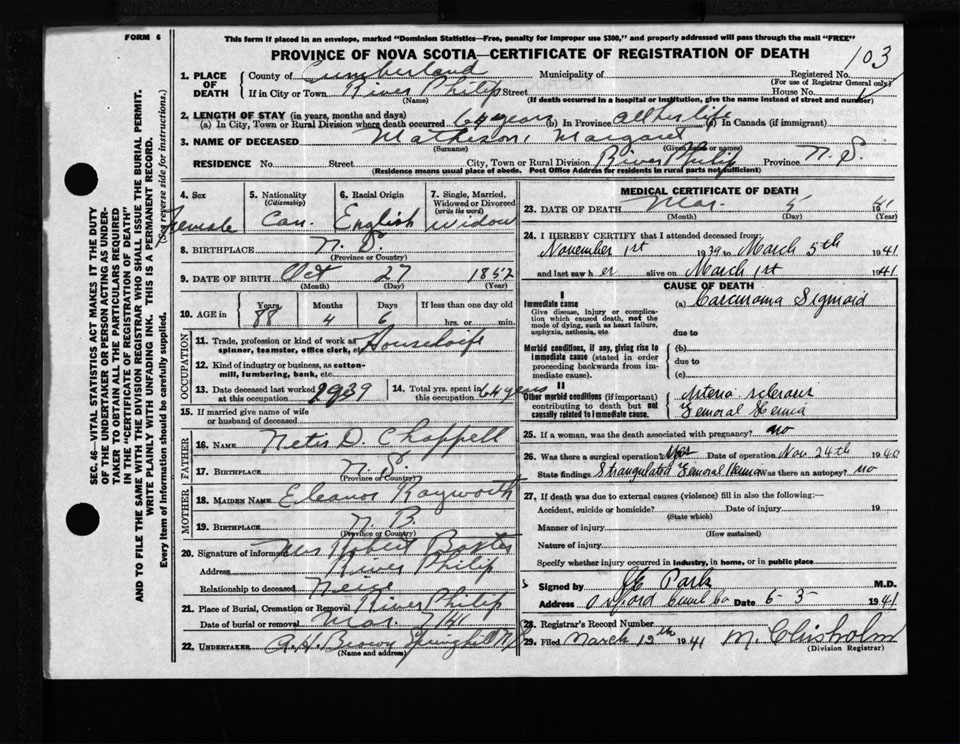 FORM 6
This form if placed in an envelope, marked "Dominion Statistics—Free, penalty for improper use $300," and properly addressed will pass through the mail "FREE"
PROVINCE OF NOVA SCOTIA—CERTIFICATE OF REGISTRATION OF DEATH
103
1. PLACE OF DEATH { County of Cumberland Municipality of Registered No.
(For use of Registrar General only)
If in City or Town River Philip Street House No.
(Name) (If death occurred in a hospital or institution, give the name instead of street and number)
2. LENGTH OF STAY (in years, months and days)
(a) In City, Town or Rural Division where death occurred 64 years (b) In Province all her life (c) In Canada (if immigrant)
3. NAME OF DECEASED Mathison, Margaret
(Surname) (Given name or names)
RESIDENCE No. Street City, Town or Rural Division River Philip Province N. S.
(Residence means usual place of abode. Post Office Address for residents in rural parts not sufficient)
4. Sex Female
5. Nationality (Citizenship) Can.
6. Racial Origin English
7. Single, Married, Widowed or Divorced (write the word) Widow
8. BIRTHPLACE N. S.
(Province or Country)
9. DATE OF BIRTH Oct 27 1852
(Month) (Day) (Year)
10. AGE in { Years 88 Months 4 Days 6 If less than one day old hrs. or min.
OCCUPATION
11. Trade, profession or kind of work as spinner, teamster, office clerk, etc. Housewife
12. Kind of industry or business, as cotton-mill, lumbering, bank, etc.
13. Date deceased last worked at this occupation 1939
14. Total yrs. spent in this occupation 64 years
15. If married give name of wife or husband of deceased
FATHER
16. NAME D. Chappell
17. BIRTHPLACE N. S.
(Province or Country)
MOTHER
18. MAIDEN NAME Eleanor Rayworth
19. BIRTHPLACE N. B.
(Province or Country)
20. Signature of informant Mrs Robert Baxter
Address River Philip
Relationship to deceased
21. Place of Burial, Cremation or Removal River Philip
Date of burial or removal Mar. 7
22. UNDERTAKER A. H. Brown Springhill N.S.
(Name and address)
MEDICAL CERTIFICATE OF DEATH
23. DATE OF DEATH Mar. 5 41
(Month) (Day) (Year)
24. I HEREBY CERTIFY that I attended deceased from:
November 1st 1939 to March 5th 1941
and last saw her alive on March 1st 1941
CAUSE OF DEATH
I
Immediate cause (a) Carcinoma Sigmoid
Give disease, injury or complication which caused death, not the mode of dying, such as heart failure, asphyxia, asthenia, etc.
due to
Morbid conditions, if any, giving rise to immediate cause (stated in order proceeding backwards from immediate cause). { (b)
due to
(c)
II
Other morbid conditions (if important) contributing to death but not causally related to immediate cause. { Arterio sclerosis
Femoral Hernia
25. If a woman, was the death associated with pregnancy? no
26. Was there a surgical operation? Yes Date of operation Nov. 24th 1940
State findings Strangulated Femoral Hernia Was there an autopsy? no
27. If death was due to external causes (violence) fill in also the following:—
Accident, suicide or homicide? Date of injury 19
(State which)
Manner of injury
(How sustained)
Nature of injury
Specify whether injury occurred in industry, in home, or in public place
Signed by Park M.D.
Address Oxford Date 6-3- 1941
28. Registrar's Record Number
29. Filed March 12th 1941 M. Chisholm
(Division Registrar)
SEC. 46—VITAL STATISTICS ACT MAKES IT THE DUTY
OF THE UNDERTAKER OR PERSON ACTING AS UNDER-
TAKER TO OBTAIN ALL THE PARTICULARS REQUIRED
IN THE "CERTIFICATE OF REGISTRATION OF DEATH"
AND TO FILE THE SAME WITH THE DIVISION REGISTRAR WHO SHALL ISSUE THE BURIAL PERMIT.
WRITE PLAINLY WITH UNFADING INK. THIS IS A PERMANENT RECORD.
Every item of Information should be carefully supplied. (See reverse side for instructions.)